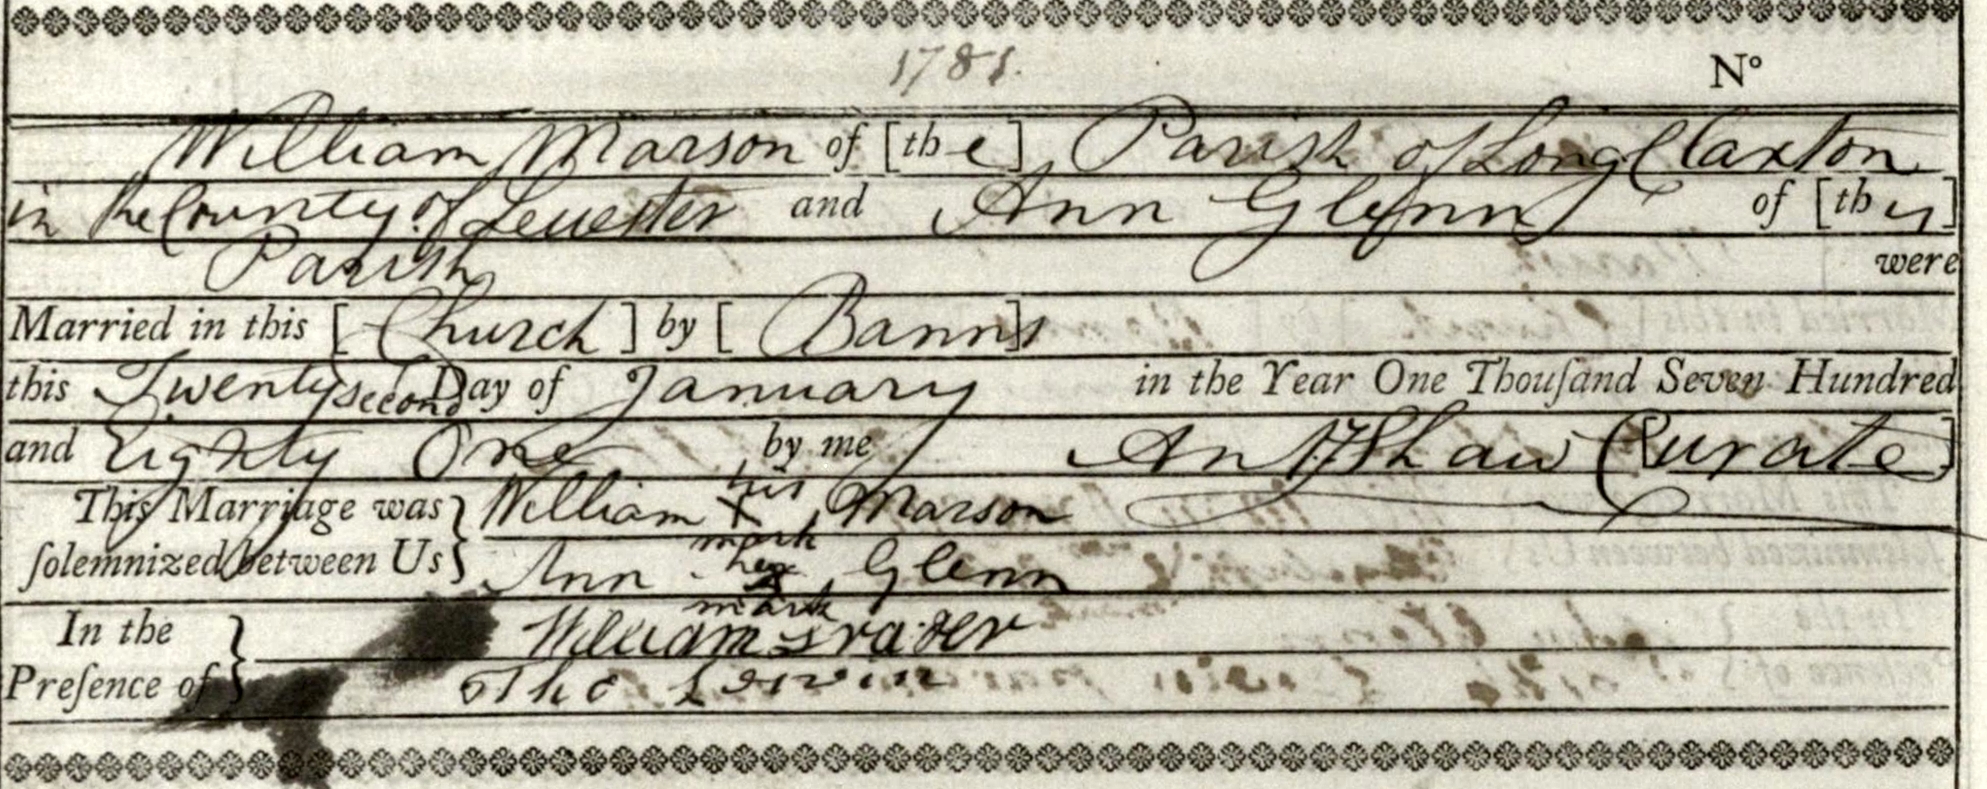 1781.
No
William Marson of [the] Parish of Long Claxton
in the County of Leicester and Ann Glenn of [this]
Parish were
Married in this [Church] by [Banns]
this Twenty second Day of January in the Year One Thouſand Seven Hundred
and Eighty One by me Ant Shaw [Curate]
This Marriage was
ſolemnized between Us
William his X mark Marson
Ann her X mark Glenn
In the
Preſence of
William
Tho Lewin